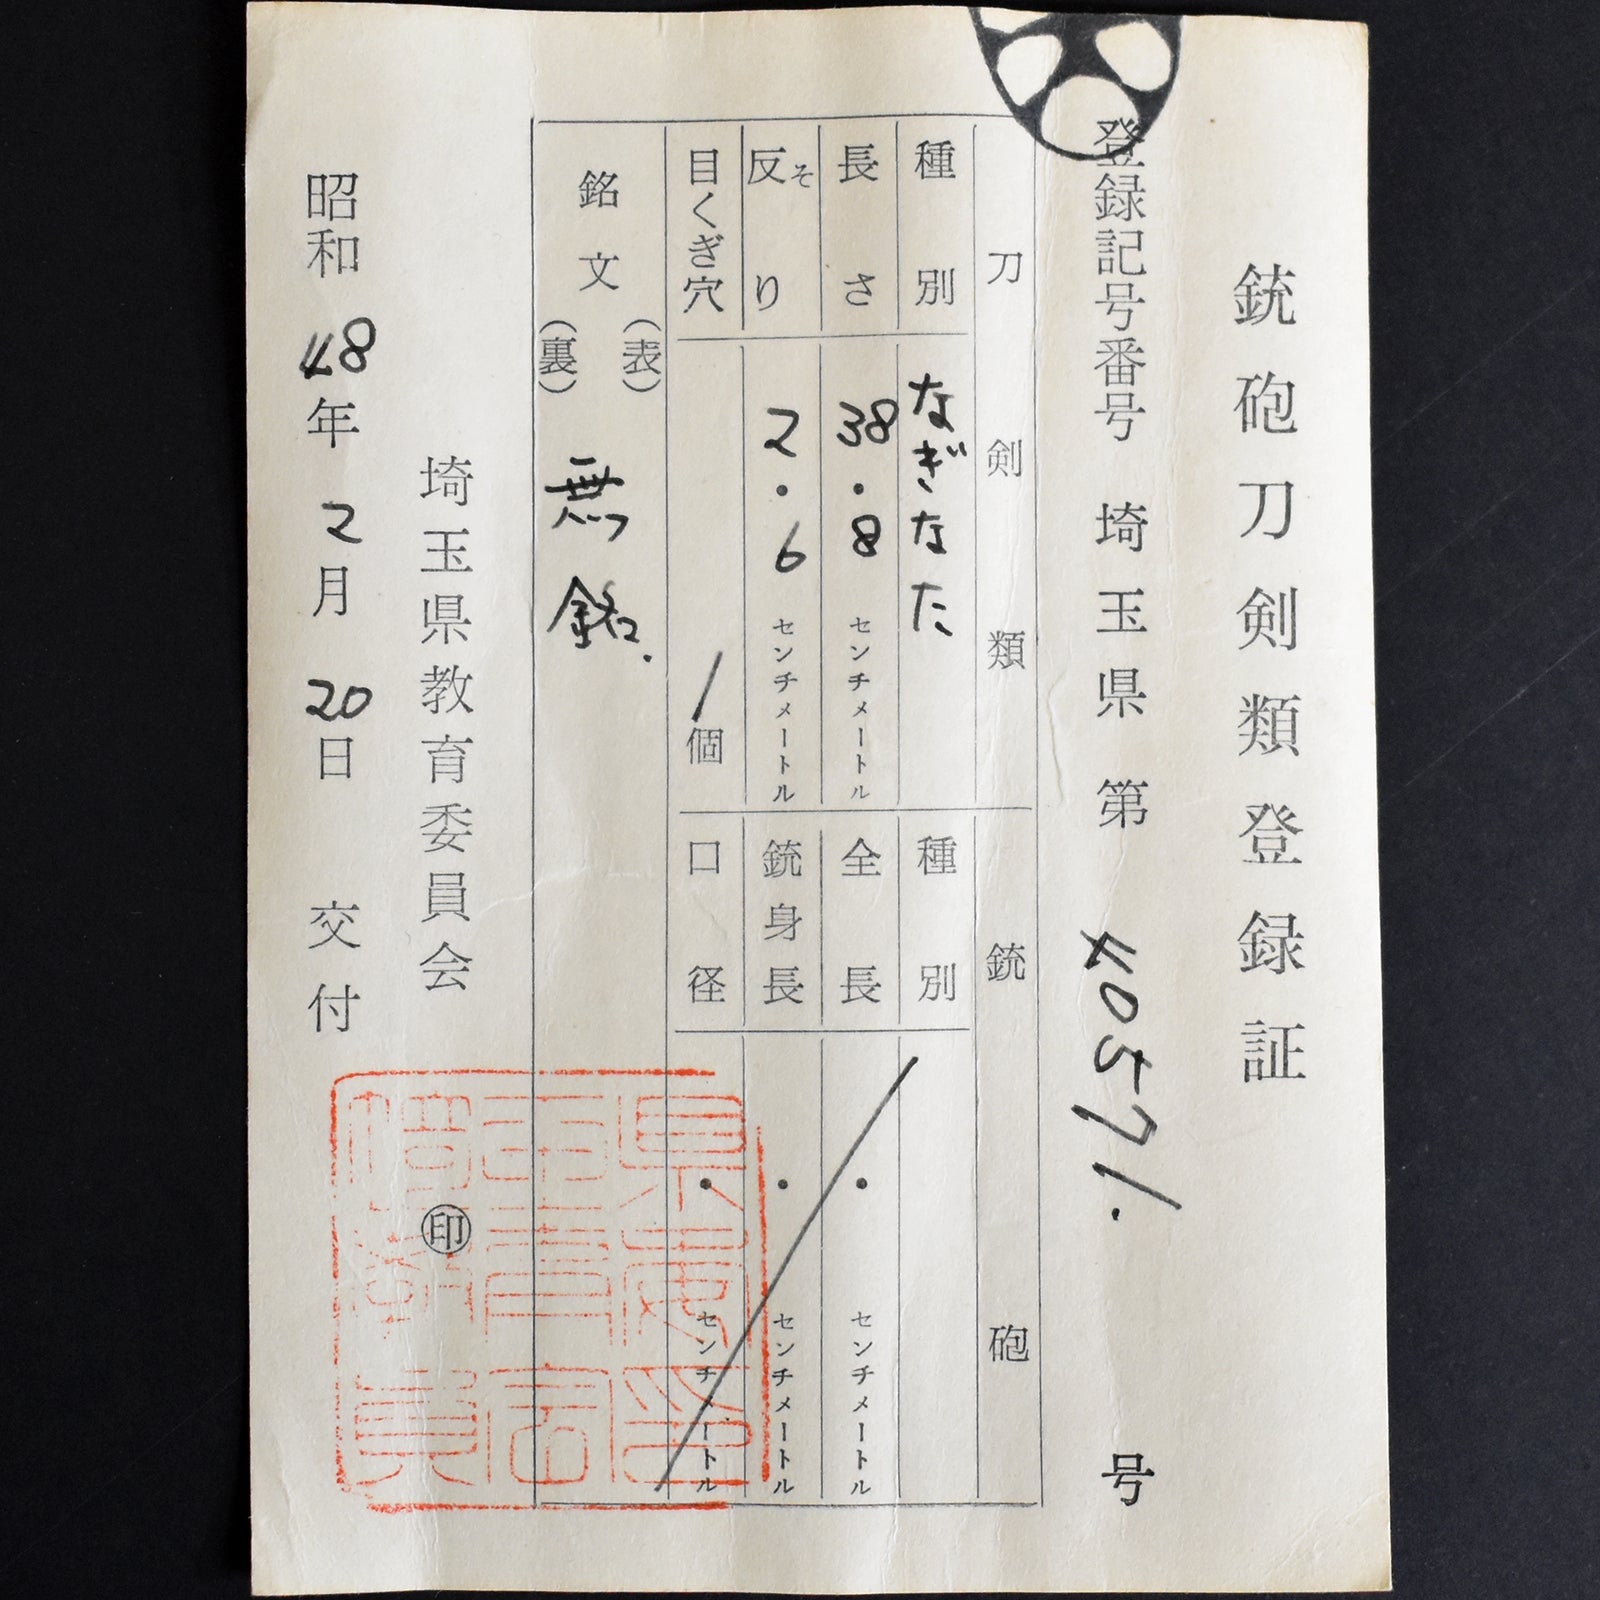 銃砲刀剣類登録証
登録記号番号 埼玉県 第 40571. 号
刀剣類
種別 なぎなた
長さ 38.8 センチメートル
反り そ 2.6 センチメートル
目くぎ穴 1個
銘文
(表)
(裏) 無銘.
銃砲
種別
全長 ・ センチメートル
銃身長 ・ センチメートル
口径 ・ センチメートル
埼玉県教育委員会 ㊞
昭和48年2月20日 交付